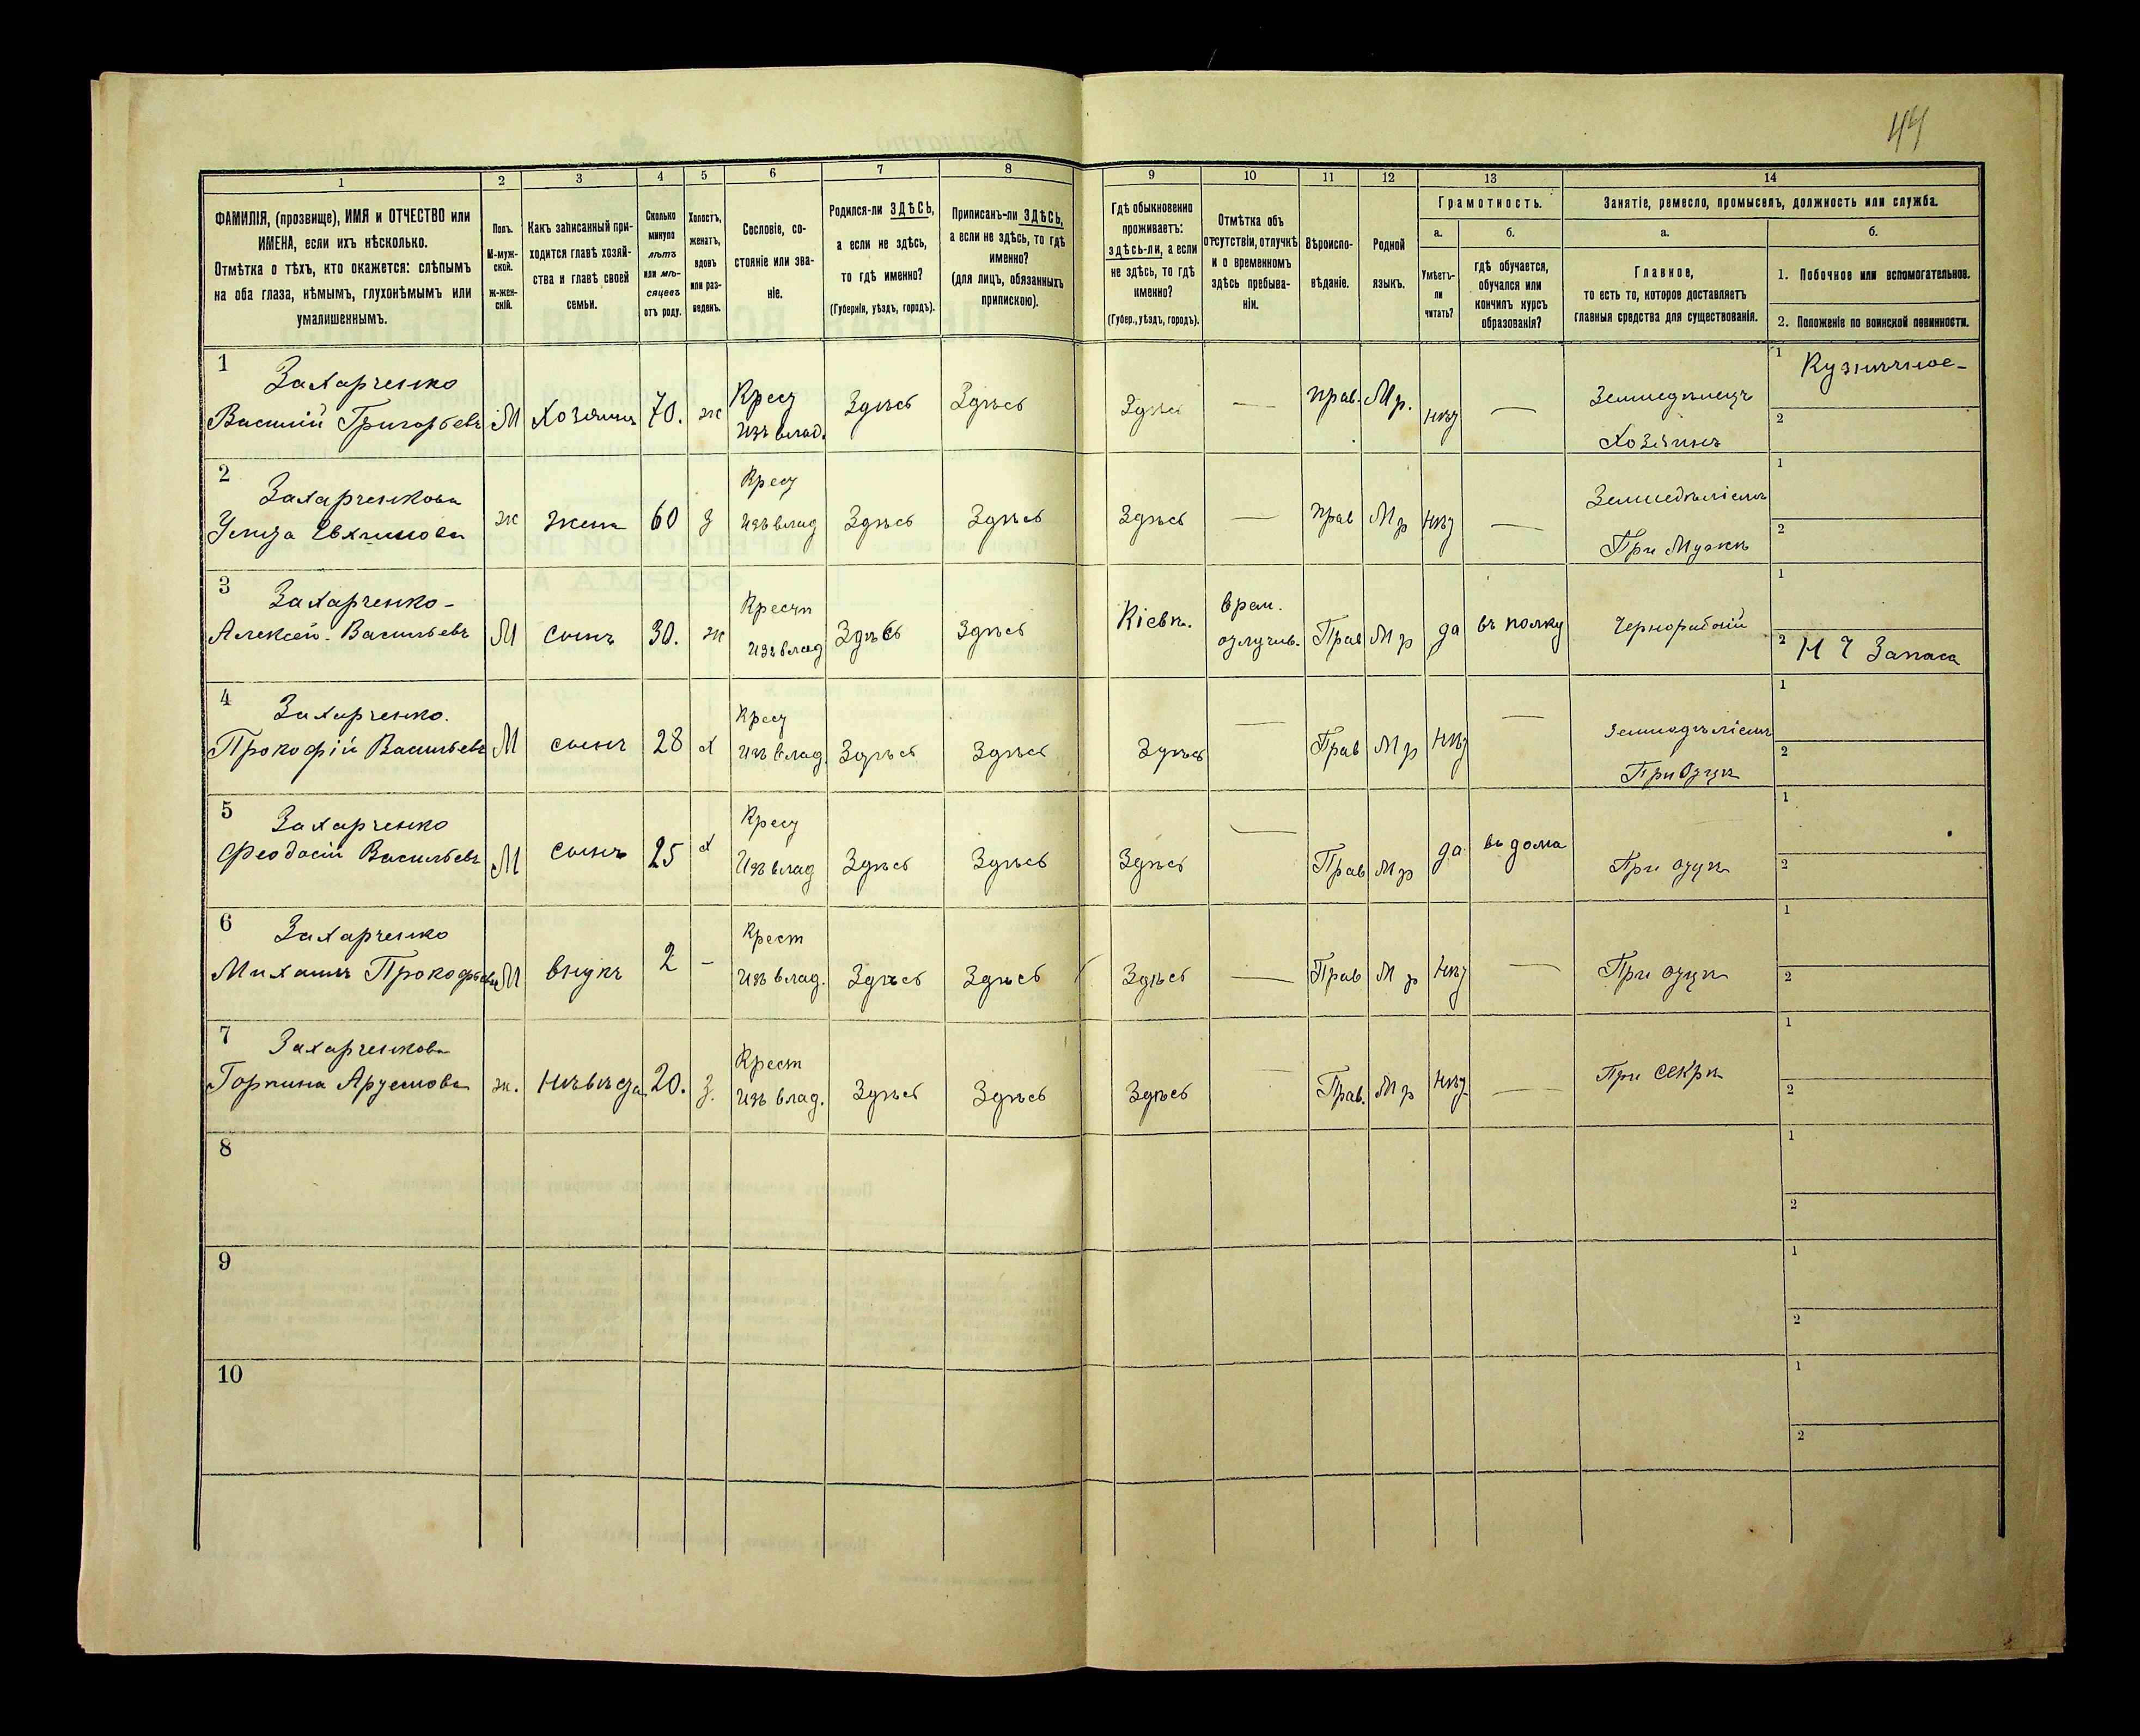 44
1 2 3 4 5 6 7 8 9 10 11 12 13 14
ФАМИЛІЯ, (прозвище), ИМЯ и ОТЧЕСТВО или
ИМЕНА, если ихъ нѣсколько.
Отмѣтка о тѣхъ, кто окажется: слѣпымъ
на оба глаза, нѣмымъ, глухонѣмымъ или
умалишеннымъ.
Полъ.
М-муж-
ской.
ж-жен-
скій.
Какъ записанный при-
ходится главѣ хозяй-
ства и главѣ своей
семьи.
Сколько
минуло
лѣтъ
или мѣ-
сяцевъ
отъ роду.
Холостъ,
женатъ,
вдовъ
или раз-
веденъ.
Сословіе, со-
стояніе или зва-
ніе.
Родился-ли ЗДѢСЬ,
а если не здѣсь,
то гдѣ именно?
(Губернія, уѣздъ, городъ).
Приписанъ-ли ЗДѢСЬ,
а если не здѣсь, то гдѣ
именно?
(для лицъ, обязанныхъ
припискою).
Гдѣ обыкновенно
проживаетъ:
здѣсь-ли, а если
не здѣсь, то гдѣ
именно?
(Губер., уѣздъ, городъ).
Отмѣтка объ
отсутствіи, отлучкѣ
и о временномъ
здѣсь пребыва-
ніи.
Вѣроиспо-
вѣданіе.
Родной
языкъ.
Грамотность.
а.
Умѣетъ-
ли
читать?
б.
гдѣ обучается,
обучался или
кончилъ курсъ
образованія?
Занятіе, ремесло, промыселъ, должность или служба.
а.
Главное,
то есть то, которое доставляетъ
главныя средства для существованія.
б.
1. Побочное или вспомогательное.
2. Положеніе по воинской повинности.
1
Захарченко
Василій Григорьевъ М Хозяинъ 70. ж Крест Изъ влад. Здѣсь Здѣсь Здѣсь — прав. Мр. нѣт — Земледѣлецъ
Хозяинъ
1 Кузнечное-
2
2
Захарченкова
Устя Евхимова ж жена 60 з Крест Изъ влад Здѣсь Здѣсь Здѣсь — прав Мр нѣт — Земледѣліемъ
При Мужѣ
1
2
3
Захарченко-
Алексѣй. Васильевъ М сынъ 30. ж Крестн Изъ влад Здѣсь Здѣсь Кіевѣ. врем. отлучив. Прав Мр да въ полку Чернорабочій
1
2 Н Ч Запаса
4
Захарченко.
Прокофій Васильевъ М сынъ 28 х Крест Изъ влад. Здѣсь Здѣсь Здѣсь — Прав Мр нѣт — Земледѣліемъ
При Отцѣ
1
2
5
Захарченко
Феодосій Васильевъ М сынъ 25 х Крест Изъ влад Здѣсь Здѣсь Здѣсь — Прав Мр да въ дома При отцѣ
1
2
6
Захарченко
Михаилъ Прокофьевъ М внукъ 2 - Крест Изъ влад. Здѣсь Здѣсь Здѣсь — Прав Мр нѣт — При отцѣ
1
2
7
Захарченкова
Горпина Артемова ж. Нѣвѣста 20. з. Крест Изъ влад. Здѣсь Здѣсь Здѣсь — Прав. Мр нѣт — При секрѣ
1
2
8
1
2
9
1
2
10
1
2